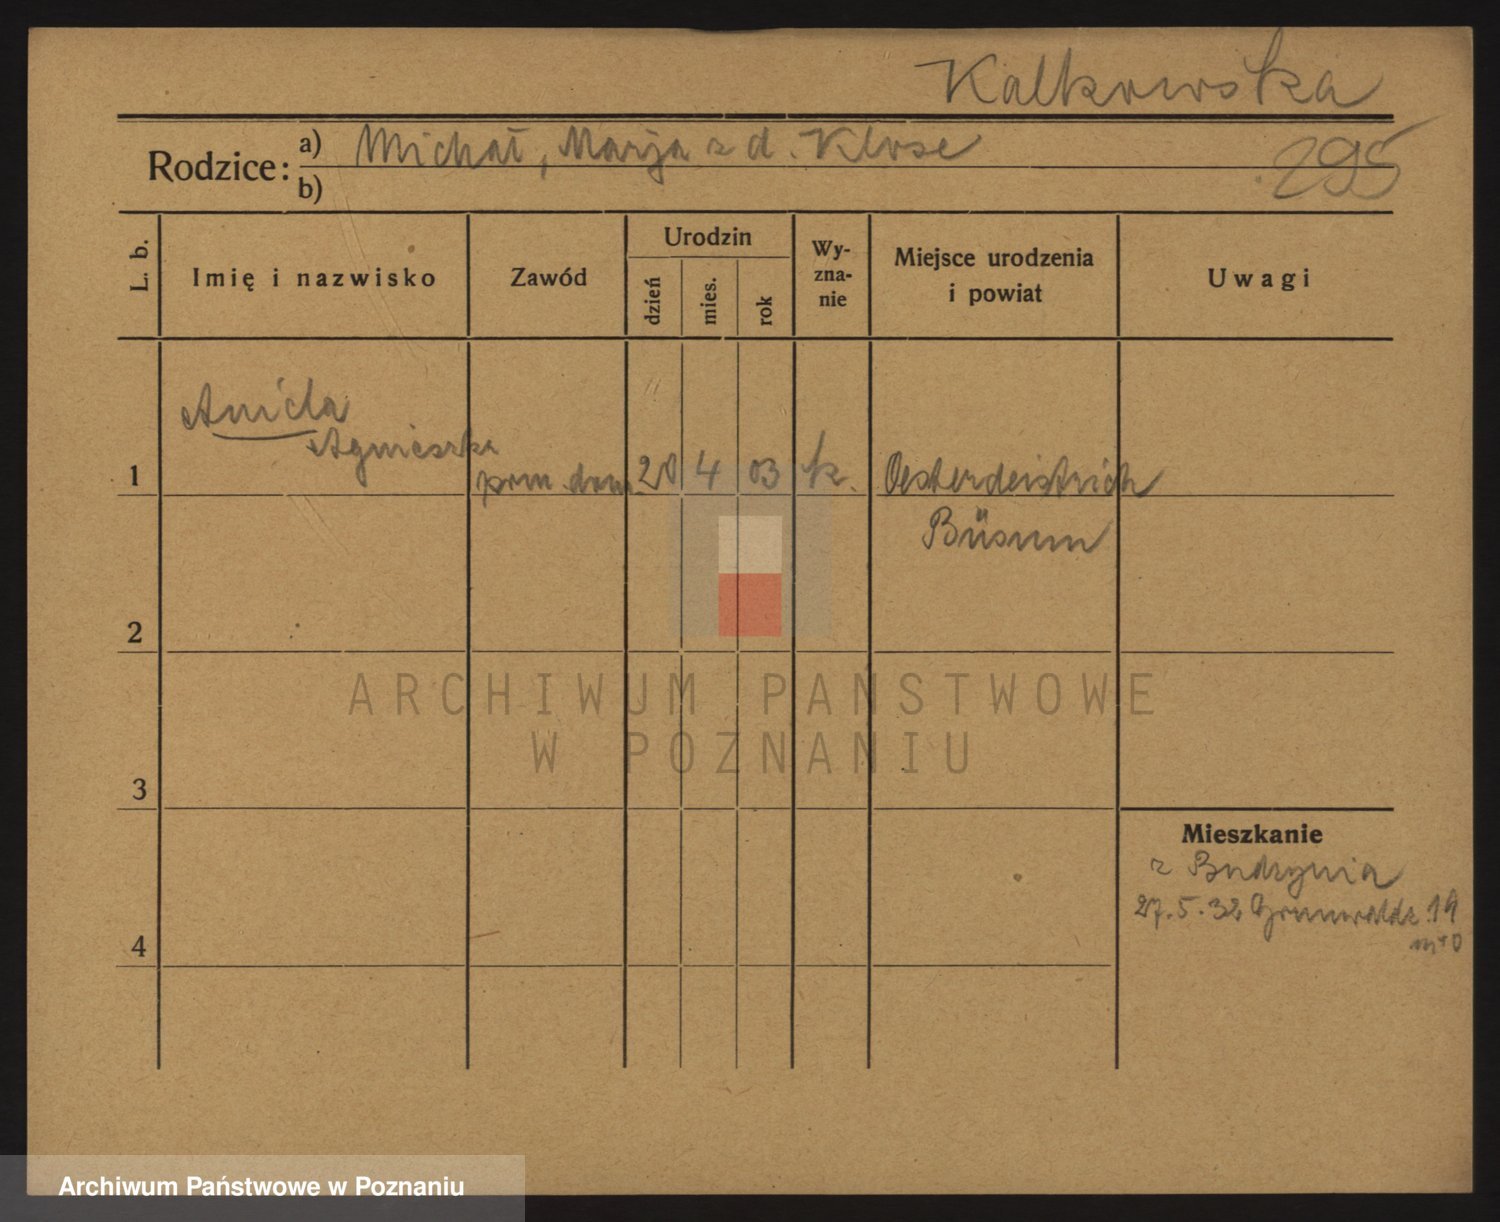 Kalkowska
Rodzice: a) Michał, Marja z d. Klose
b)
295
L. b.
Imię i nazwisko
Zawód
Urodzin
dzień
mies.
rok
Wy-
zna-
nie
Miejsce urodzenia
i powiat
Uwagi
Aniela
Agnieszka
1
pom. dom. 20 4 03 k. Oesterdeistrich
Büsum
2
3
4
Mieszkanie
z Budzynia
27.5.32 Grunwaldz. 19
ARCHIWUM PAŃSTWOWE
W POZNANIU
Archiwum Państwowe w Poznaniu